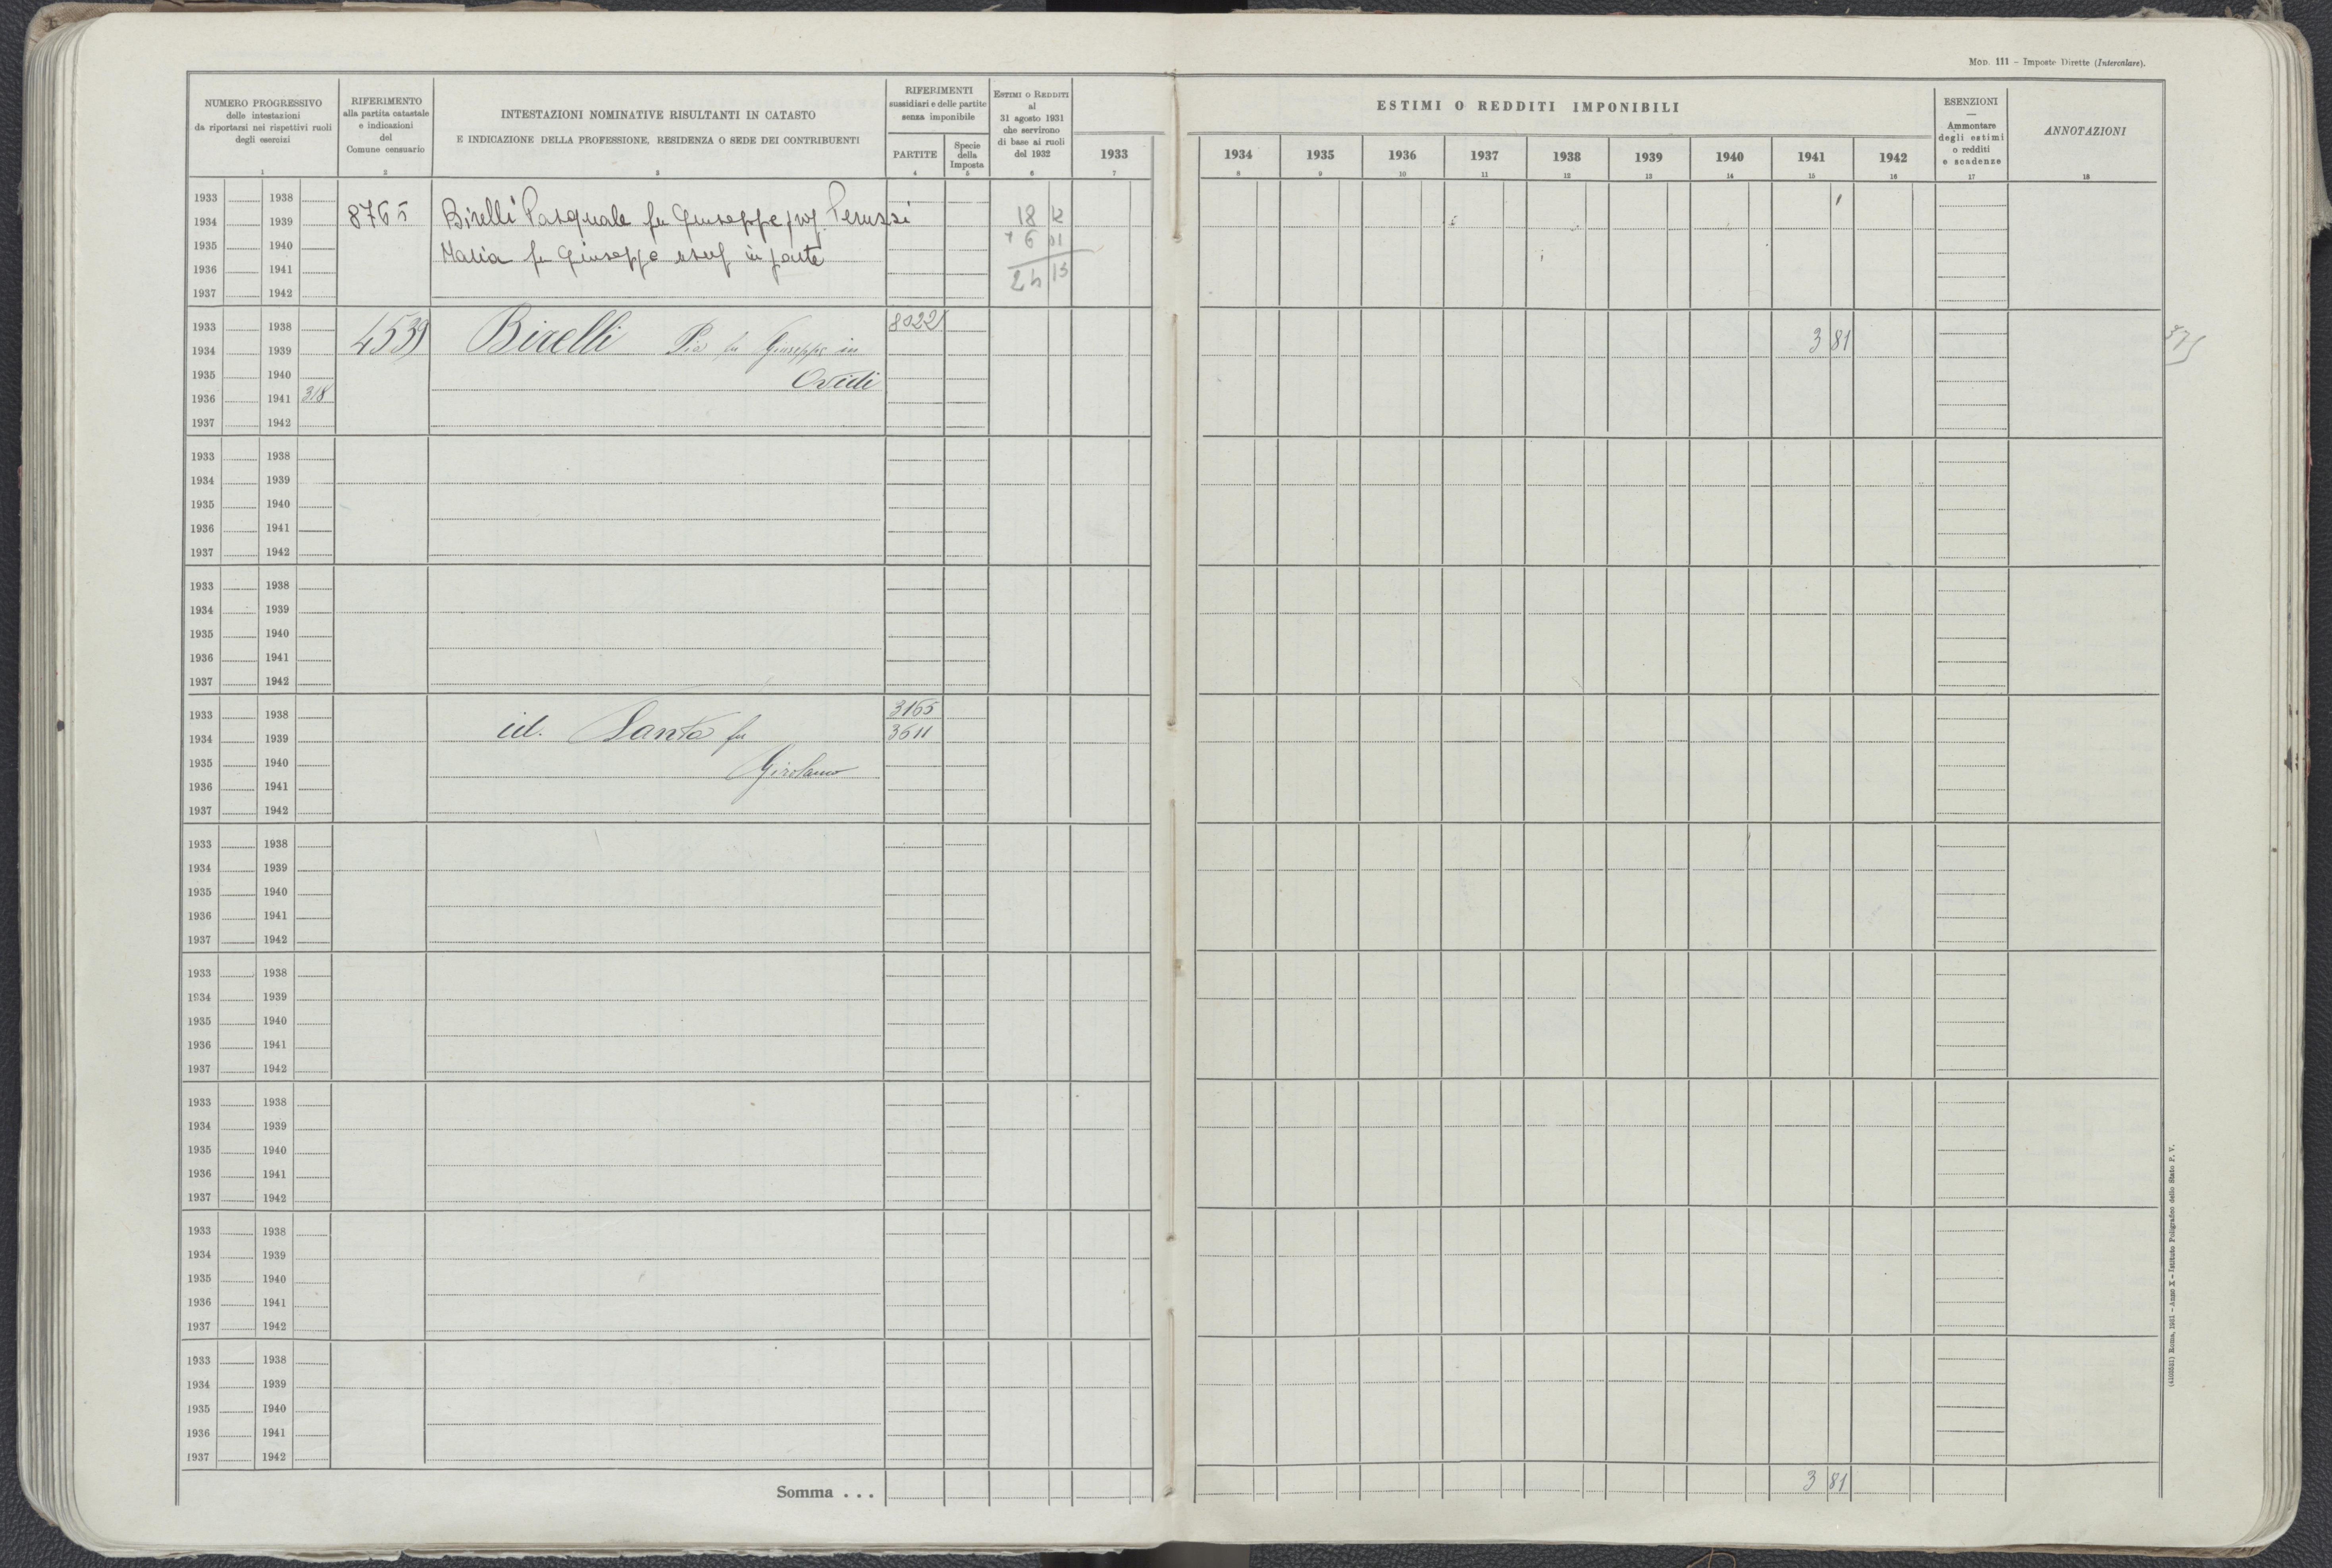 MOD. 111 – Imposte Dirette (Intercalare).
NUMERO PROGRESSIVO
delle intestazioni
da riportarsi nei rispettivi ruoli
degli esercizi
1
RIFERIMENTO
alla partita catastale
e indicazioni
del
Comune censuario
2
INTESTAZIONI NOMINATIVE RISULTANTI IN CATASTO
E INDICAZIONE DELLA PROFESSIONE, RESIDENZA O SEDE DEI CONTRIBUENTI
3
RIFERIMENTI
sussidiari e delle partite
senza imponibile
PARTITE
4
Specie
della
Imposta
5
ESTIMI O REDDITI
al
31 agosto 1931
che servirono
di base ai ruoli
del 1932
6
ESTIMI O REDDITI IMPONIBILI
1933 1934 1935 1936 1937 1938 1939 1940 1941 1942
7 8 9 10 11 12 13 14 15 16
ESENZIONI
—
Ammontare
degli estimi
o redditi
e scadenze
17
ANNOTAZIONI
18
1933 1938
1934 1939 8765 Birelli Pasquale fu Giuseppe prop. Peruzzi 18 12
1935 1940 + 6 01
1936 1941 Maria fu Giuseppe usuf in parte 24 13
1937 1942
1933 1938 8022
1934 1939 4539 Birelli Pia fu Giuseppe in 3 81
1935 1940 Ovidi
1936 1941 318
1937 1942
1933 1938
1934 1939
1935 1940
1936 1941
1937 1942
1933 1938
1934 1939
1935 1940
1936 1941
1937 1942
1933 1938 3165
1934 1939 id. Santa fu 3611
1935 1940 Girolamo
1936 1941
1937 1942
1933 1938
1934 1939
1935 1940
1936 1941
1937 1942
1933 1938
1934 1939
1935 1940
1936 1941
1937 1942
1933 1938
1934 1939
1935 1940
1936 1941
1937 1942
1933 1938
1934 1939
1935 1940
1936 1941
1937 1942
1933 1938
1934 1939
1935 1940
1936 1941
1937 1942
Somma . . . 3 81
(4103551) Roma, 1931 – Anno X – Istituto Poligrafico dello Stato P. V.